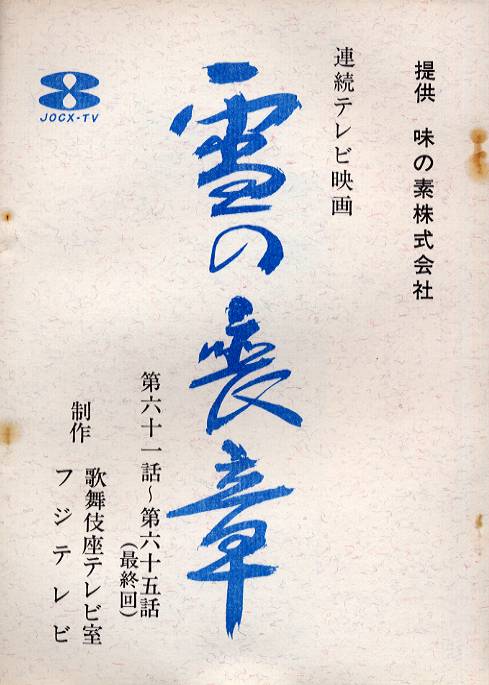 提供 味の素株式会社
連続テレビ映画
雪の喪章
第六十一話～第六十五話
(最終回)
制作 歌舞伎座テレビ室
フジテレビ
JOCX-TV